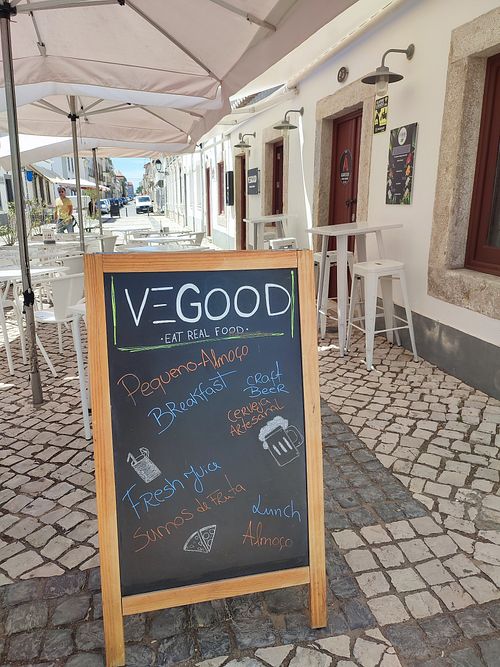 VEGOOD
·EAT REAL FOOD·
Pequeno-Almoço
Breakfast
Craft
Beer
Cerveja
Artesanal
Fresh Juice
Sumos de Fruta
Lunch
Almoço